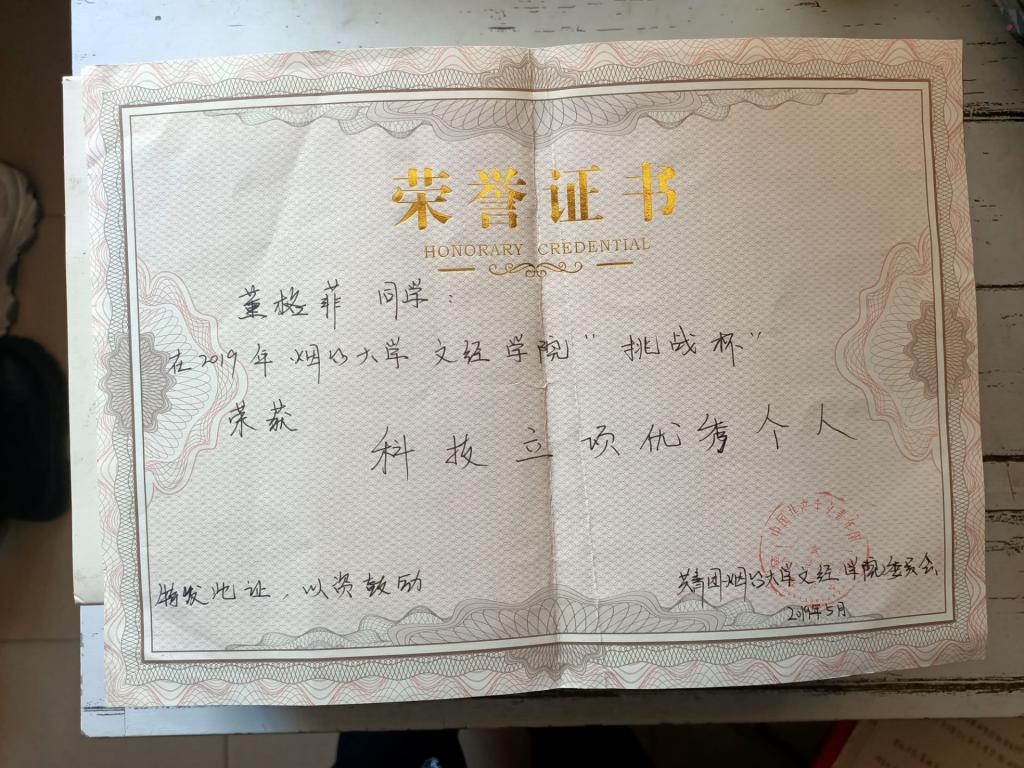 荣誉证书
HONORARY CREDENTIAL
董格菲 同学：
在2019年烟台大学文经学院“挑战杯”
荣获
科技立项优秀个人
特发此证，以资鼓励
共青团烟台大学文经学院委员会
2019年5月
中国共产主义青年团